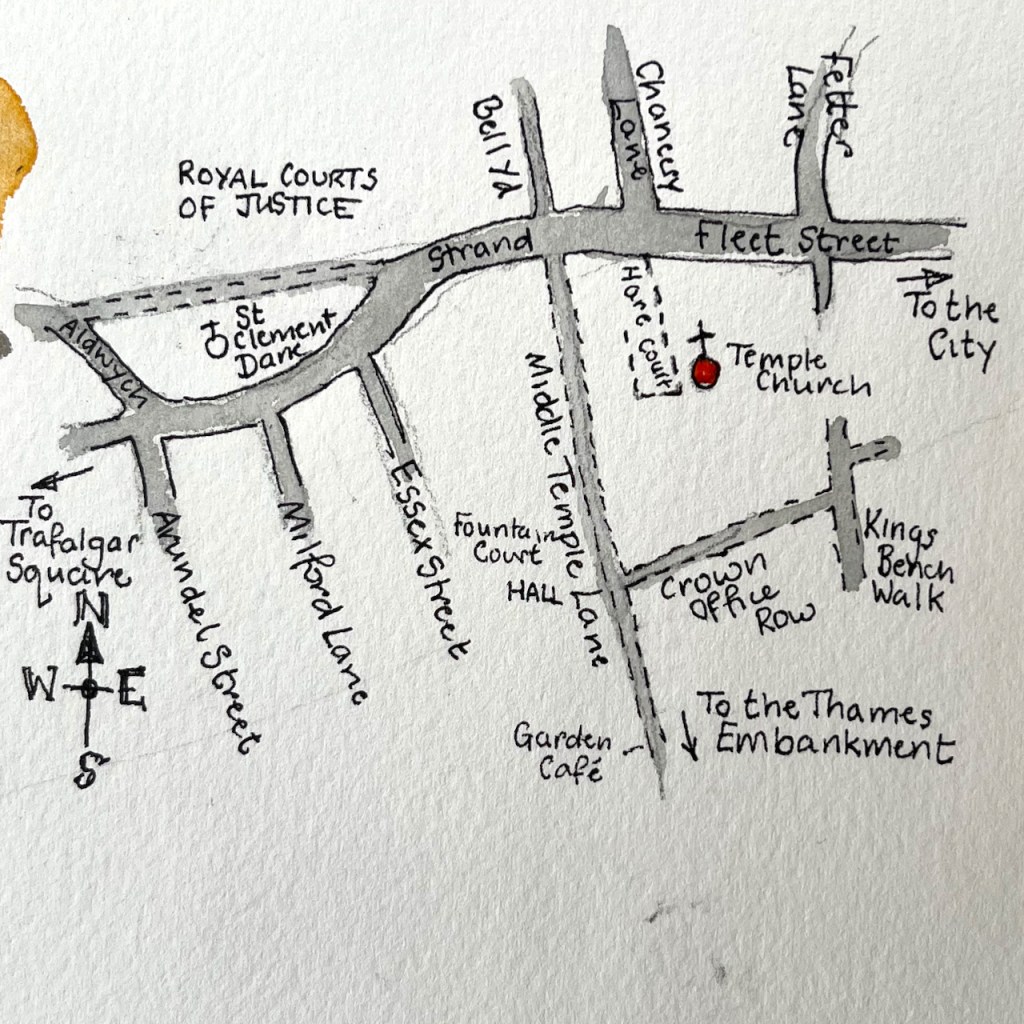 Bell Yd
Chancery
Lane
Fetter
Lane
ROYAL COURTS
OF JUSTICE
Strand
Fleet Street
To the
City
Hare Court
Temple
Church
St
Clement
Dane
Aldwych
To
Trafalgar
Square
Arundel Street
Milford Lane
Essex Street
Middle Temple Lane
Fountain
Court
HALL
Crown
Office
Row
Kings
Bench
Walk
N
W E
S
Garden
Café
To the Thames
Embankment